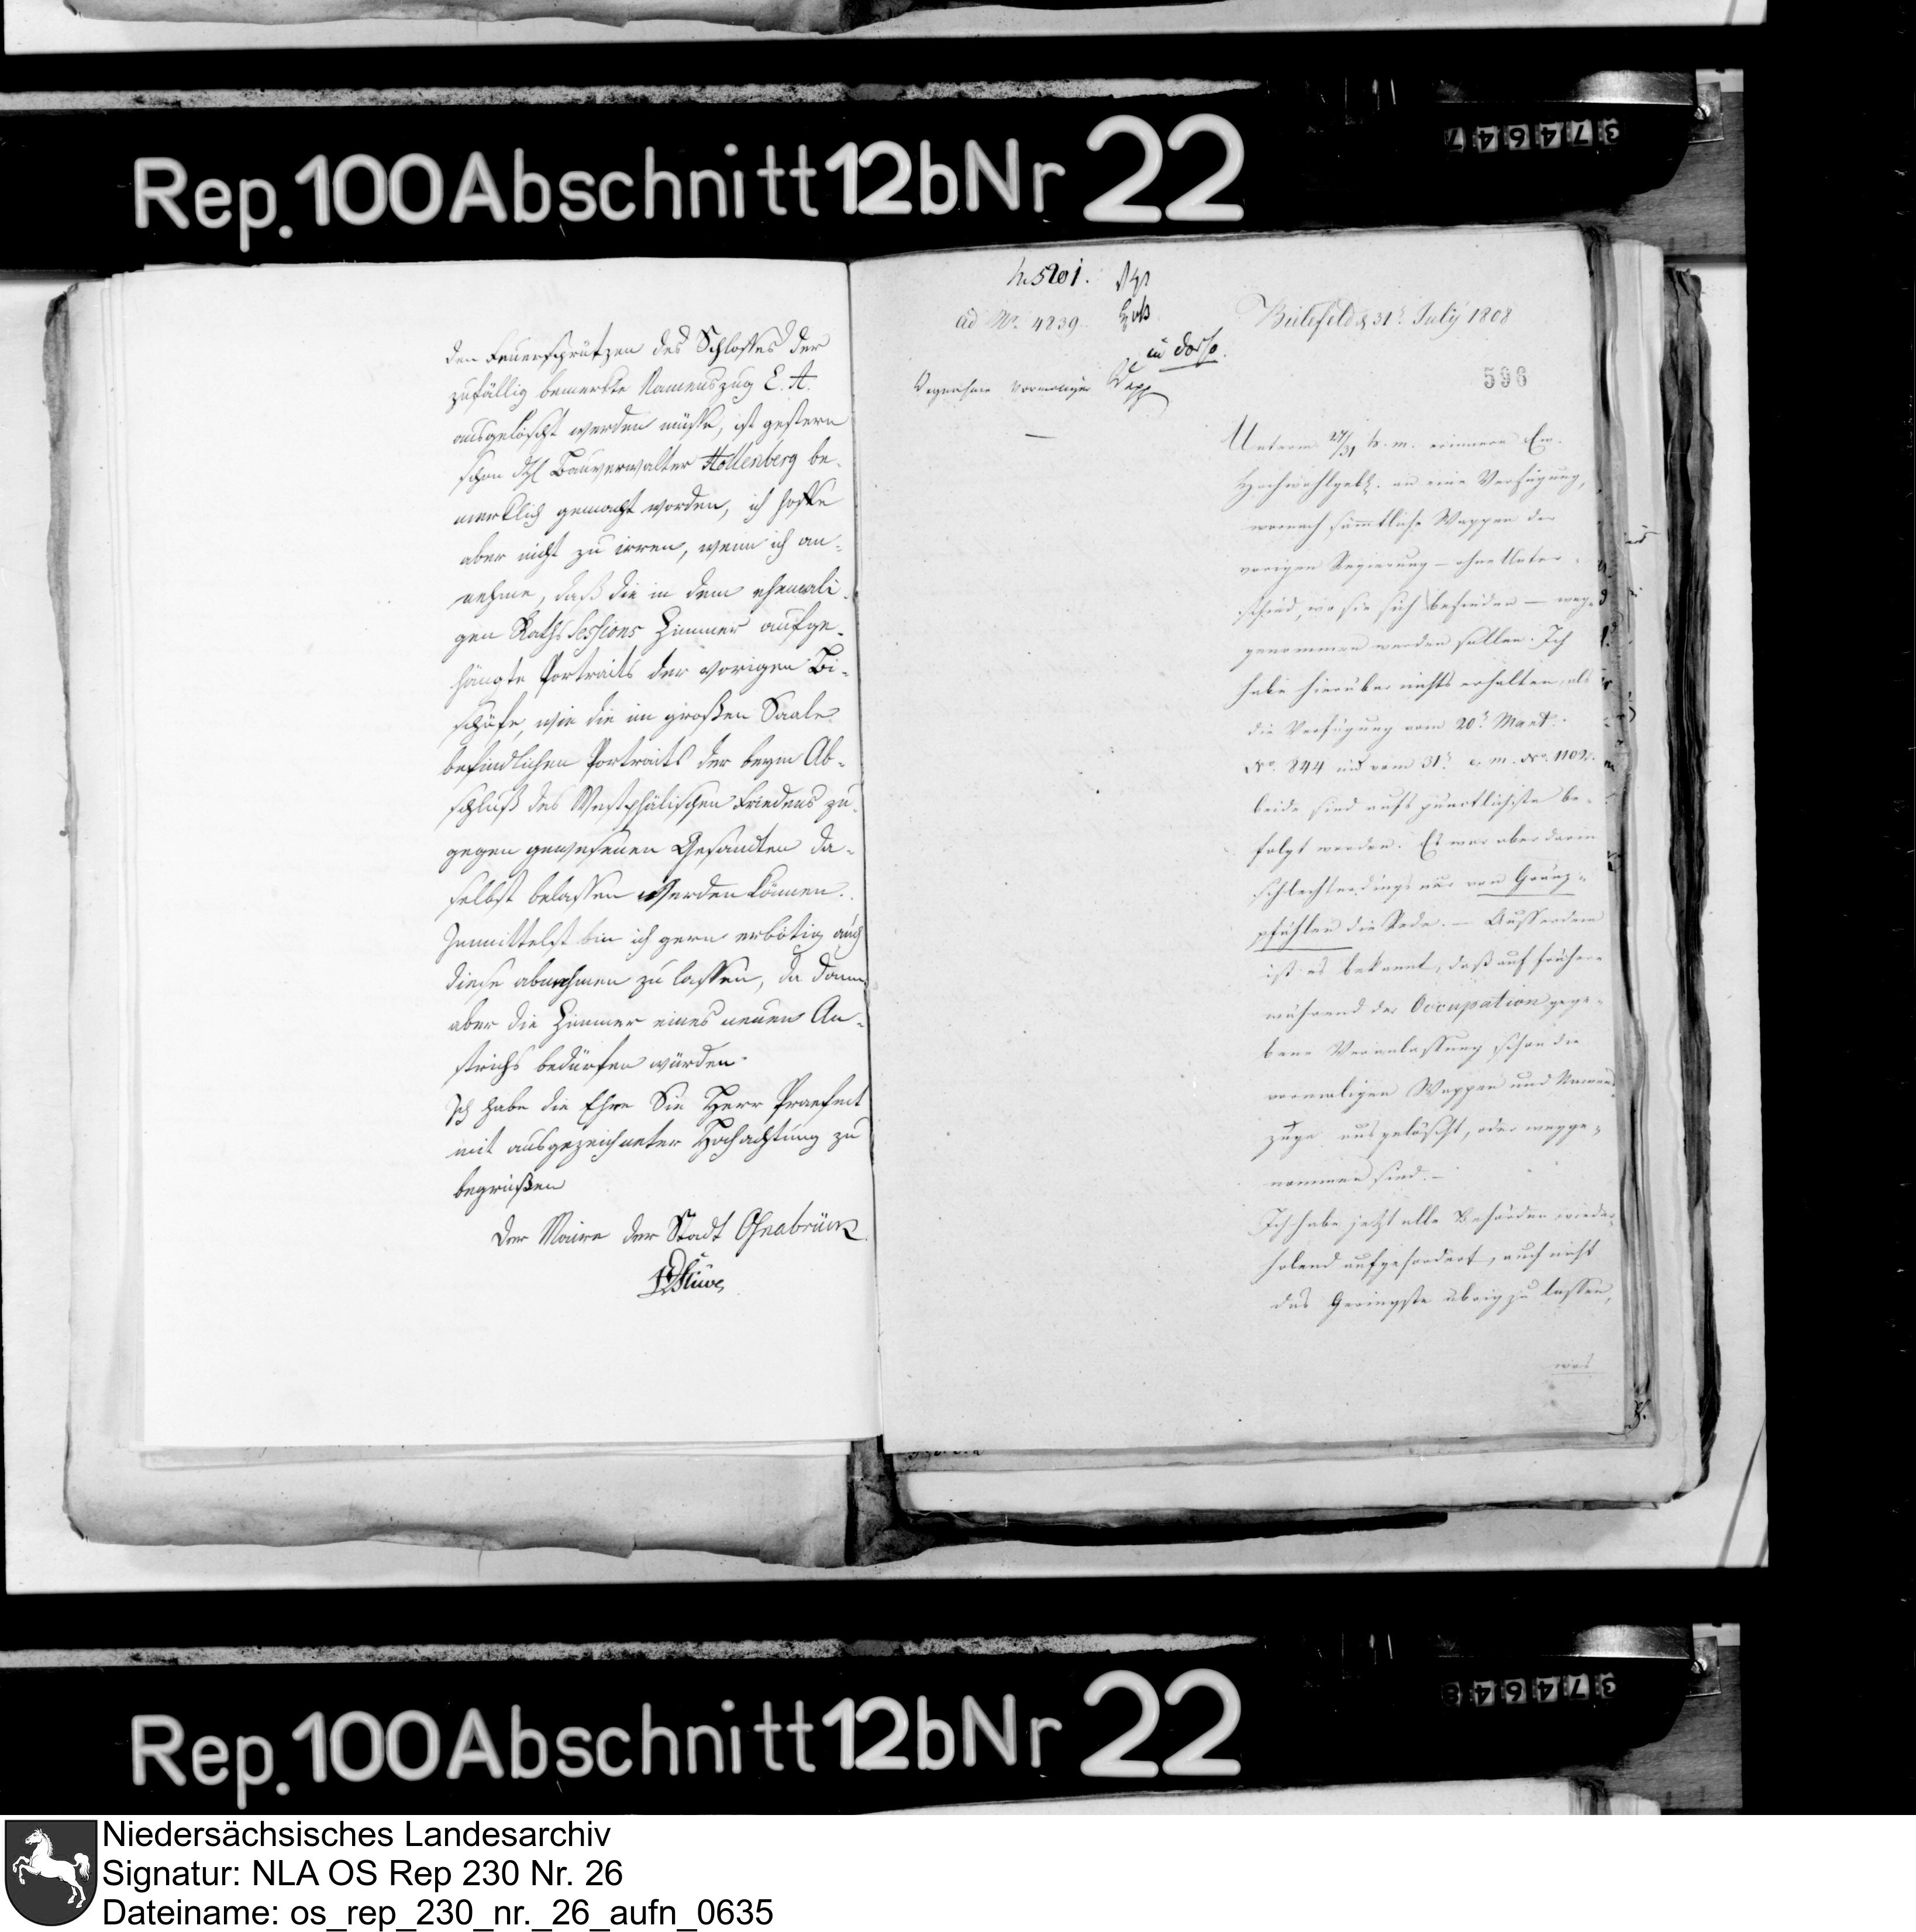 Rep. 100 Abschnitt 12b Nr 22
374647
den Feuersprützen des Schlosses der
zufällig bemerkte Namenszug E. A.
ausgelöscht werden müsse, ist gestern
schon Bauverwalter Hollenberg be-
merklich gemacht worden, ich hoffe
aber nicht zu irren, wenn ich an-
nehme, daß die in dem ehemali-
gen Raths Sessions Zimmer aufge-
hängte Portraits der vorigen Bi-
schöfe, wie die im großen Saale
befindlichen Portraits der beym Ab-
schluß des Westphälischen Friedens zu-
gegen gewesenen Gesandten da-
selbst belassen werden können.
Inmittelst bin ich gern erbötig auch
diese abnehmen zu lassen, da dann
aber die Zimmer eines neuen An-
strichs bedürfen würden.
Ich habe die Ehre Sie Herr Praefect
mit ausgezeichneter Hochachtung zu
begrüßen
Der Maire der Stadt Osnabrück
Stüve
5201.
ad No. 4239
in dorso.
Wegnahme vormaliger Wapp
Bielefeld d 31t July 1808
596
Unterm 27/31 h. m. erinnern Ew.
Hochwohlgeb. an eine Verfügung,
wonach sämmtliche Wappen der
vorigen Regierung – ohne Unter-
schied, wo sie sich befinden – weg-
genommen werden sollen. Ich
habe hierüber nichts erhalten, als
die Verfügung vom 20t Maerz
No. 844 und vom 31t c. m. No. 1102.
beide sind aufs puenctlichste be-
folgt worden. Es war aber darin
schlechterdings nur von Gränz-
pfählen die Rede. – Ausserdem
ist es bekannt, daß auf frühere
während der Occupation gege-
bene Veranlassung schon die
vormaligen Wappen und Namens
züge ausgelöscht, oder wegge-
nommen sind. –
Ich habe jetzt alle Behörden wieder-
holend aufgefordert, auch nicht
das Geringste übrig zu lassen,
was
Rep. 100 Abschnitt 12b Nr 22
374648
Niedersächsisches Landesarchiv
Signatur: NLA OS Rep 230 Nr. 26
Dateiname: os_rep_230_nr._26_aufn_0635